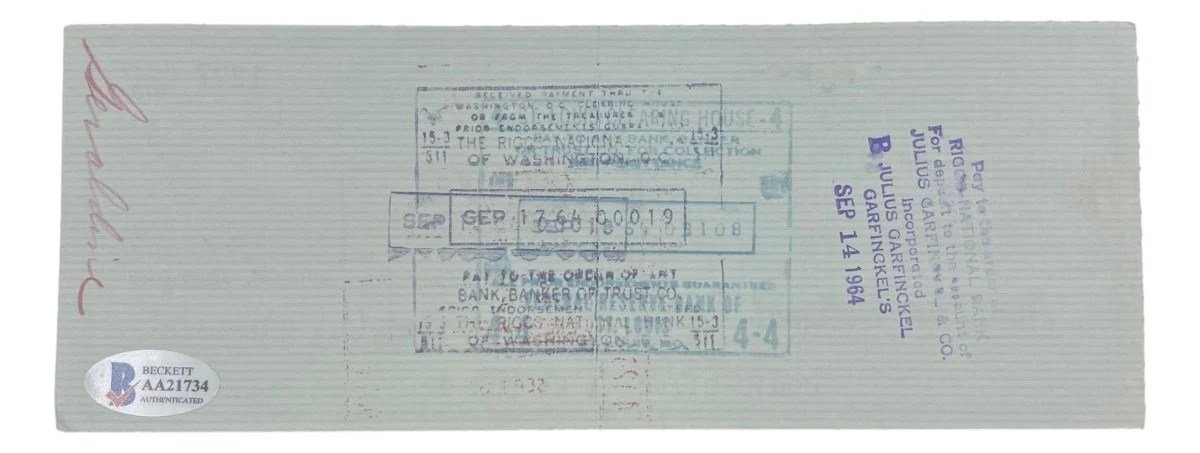 Geraldine
RECEIVED PAYMENT THRU THE
WASHINGTON, D.C. CLEARING HOUSE
OR FROM THE TREASURER
PRIOR ENDORSEMENTS GUAR
15-3 THE RIGGS NATIONAL 15-3
511 OF WASHINGTON, D.C.
CLEARING HOUSE-4
PAY ANY BANK, BANKER
OR TRUST CO. FOR COLLECTION
SEP
SEP 1764 00019
SEP 18 64 08108
PAY TO THE ORDER OF ANY
BANK, BANKER OR TRUST CO.
PRIOR ENDORSEMENTS GUARANTEED
RESERVE BANK OF
ST. LOUIS
4-4 4-4
15-3 THE RIGGS NATIONAL BANK 15-3
511 OF WASHINGTON, D.C. 511
Pay to the
RIGGS NATIONAL BANK
For deposit to the account of
JULIUS GARFINCKEL & CO.
Incorporated
B JULIUS GARFINCKEL
GARFINCKEL'S
SEP 14 1964
BECKETT
AA21734
AUTHENTICATED